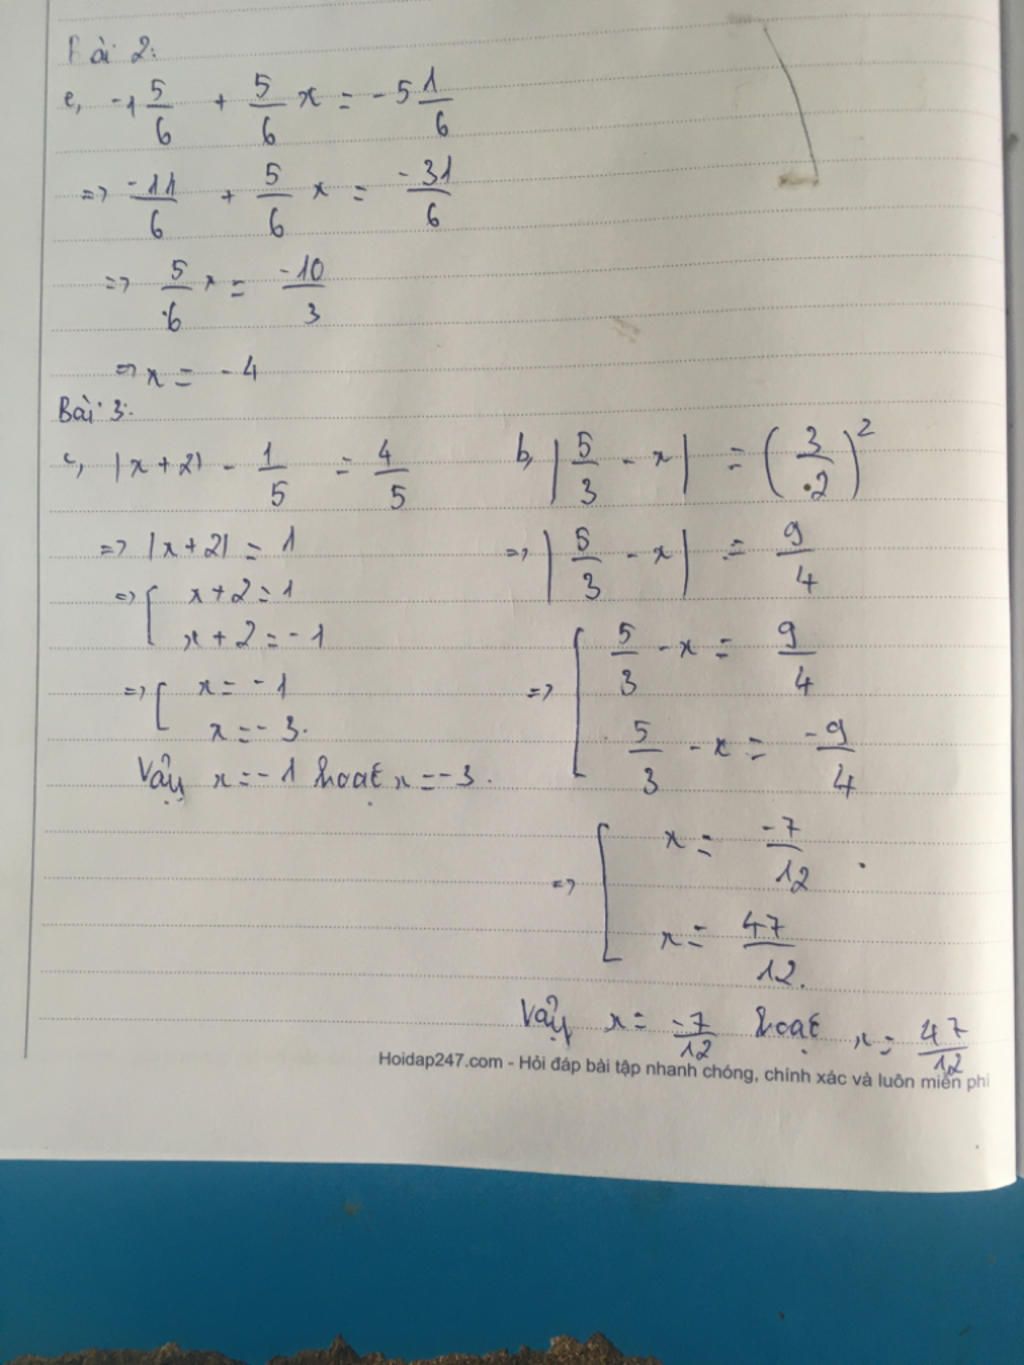 Bài 2:
e, -1 5/6 + 5/6 x = -5 1/6
=> -11/6 + 5/6 x = -31/6
=> 5/6 x = -10/3
=> x = -4
Bài 3:
c, |x+2| - 1/5 = 4/5
=> |x+2| = 1
=> [ x+2=1
x+2=-1
=> [ x=-1
x=-3.
Vậy x=-1 hoặc x=-3.
b, |5/3 - x| = (3/2)²
=> |5/3 - x| = 9/4
=> [ 5/3 - x = 9/4
5/3 - x = -9/4
=> [ x = -7/12 .
x = 47/12.
Vậy x = -7/12 hoặc x = 47/12
Hoidap247.com - Hỏi đáp bài tập nhanh chóng, chính xác và luôn miễn phí